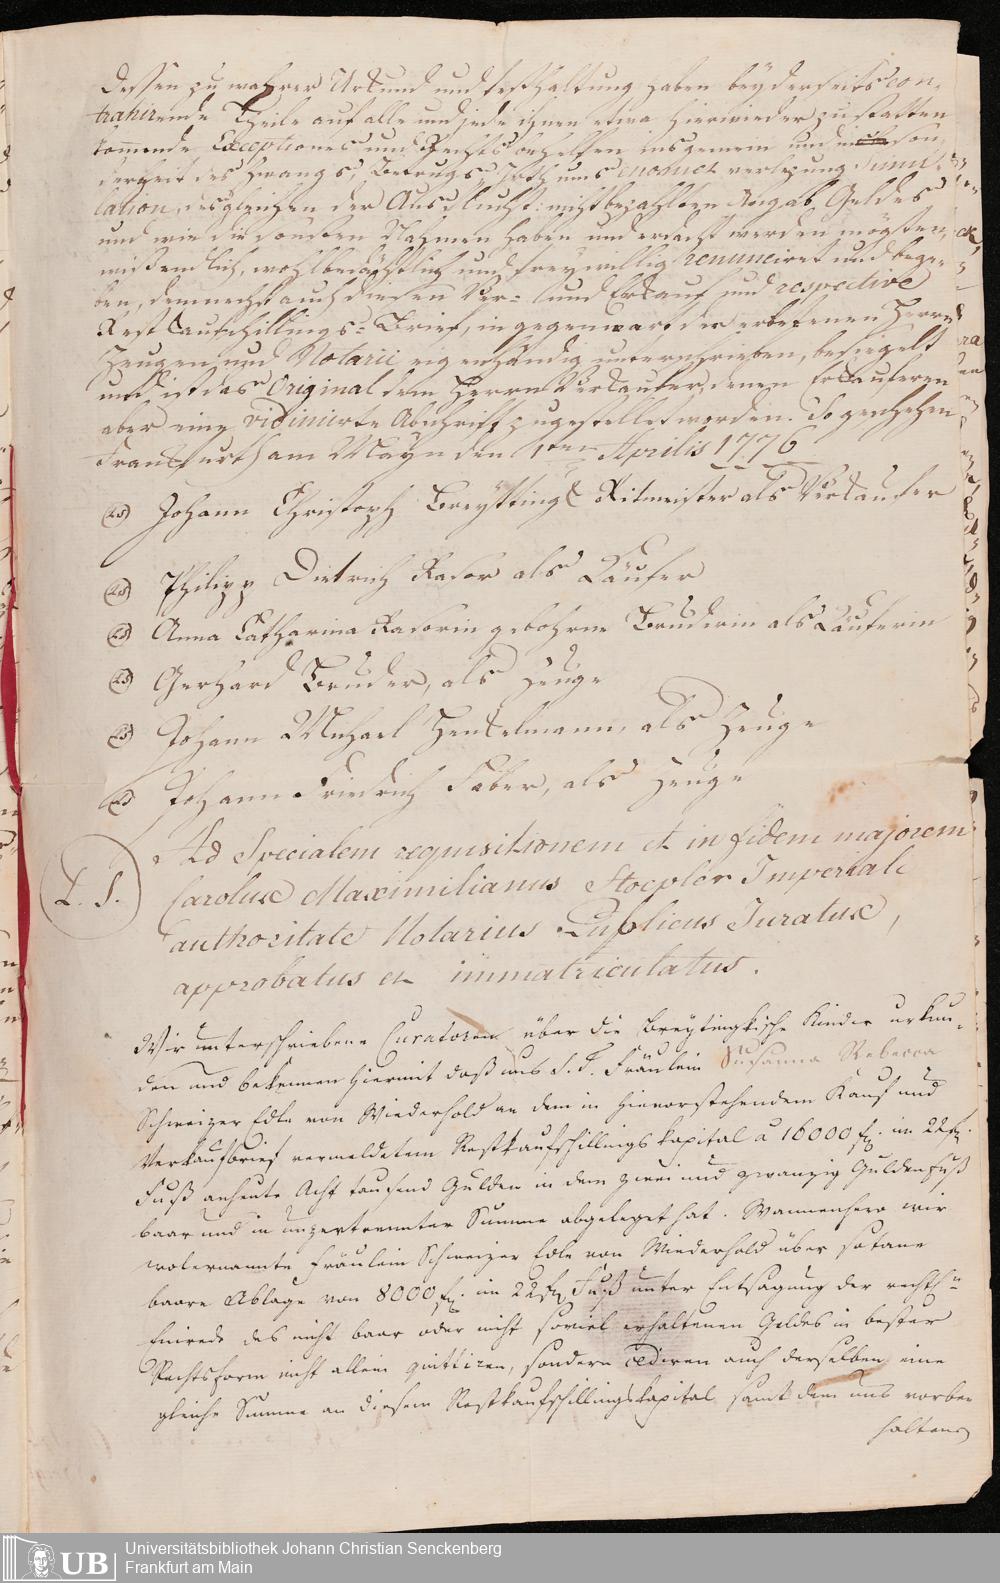 Dessen zu wahrer Urkund und Festhaltung haben beyderseits con-
trahirende Theile auf alle und jede ihnen etwa hierwieder zustatten
kommende Exceptiones und Rechtsbehelffen insgemein und in son-
derheit des Zwangs, Betrugs, Irrthums enormer verletzung Simu-
lation, desgleichen der Ausflucht: nichtbezahlten Angab Geldes
und wie die sonsten Nahmen haben und erdacht werden mögten,
wißendlich, wohlbedächtlich und freywillig renunciret und bege-
ben, demnechst auch diesen Ver- und Erkauf und respective
Restkaufschillings-Brief, in gegenwart der erbetenen Herrn
Zeugen und Notarii eigenhändig unterschrieben, besiegelt
und ist das Original dem Herrn Verkäufer, denen Erkäuferen
aber eine vidimirte Abschrift zugestellet worden. So geschehen
Franckfurth am Mayn den 1ten Aprilis 1776
LS Johann Christoph Breyttingk Ritmeister als Verkäufer
LS Philipp Dietrich Rasor als Käufer
LS Anna Catharina Rasorin gebohrne Bruderin als Käuferin
LS Gerhard Bruder, als Zeuge
LS Johann Michael Henkelmann, als Zeuge
LS Johann Friedrich Faber, als Zeuge
L. S.
Ad Specialem requisitionem et in fidem majorem
Carolus Maximilianus Stoepler Imperiale
authoritate Notarius Publicus Juratus,
approbatus et immatriculatus.
Wir unterschriebene Curatoren über die Breytingkische Kinder urkun-
den und bekennen hiermit daß uns S. T. Fräulein Susanna Rebecca
Schweizer Edle von Wiederhold an dem in hievorstehendem Kauf und
Verkaufbrief vermeldetem Restkaufschillingskapital à 16000 f. im 22 f.
Fuß anheute Acht tausend Gulden in dem zwei und zwanzig Guldenfuß
baar und in unzertrennter Summe abgeleget hat. Wannenhero wir
wolernannte Fräulein Schweizer Edle von Wiederhold über sotane
baare Ablage von 8000 f. im 22 f. Fuß unter Entsagung der rechtl.
Einrede des nicht baar oder nicht soviel erhaltenen Geldes in bester
Rechtsform nicht allein quittiren, sondern cediren auch derselben eine
gleiche Summe an diesem Restkaufschillingskapital samt dem uns vorbe-
haltenen
UB
Universitätsbibliothek Johann Christian Senckenberg
Frankfurt am Main